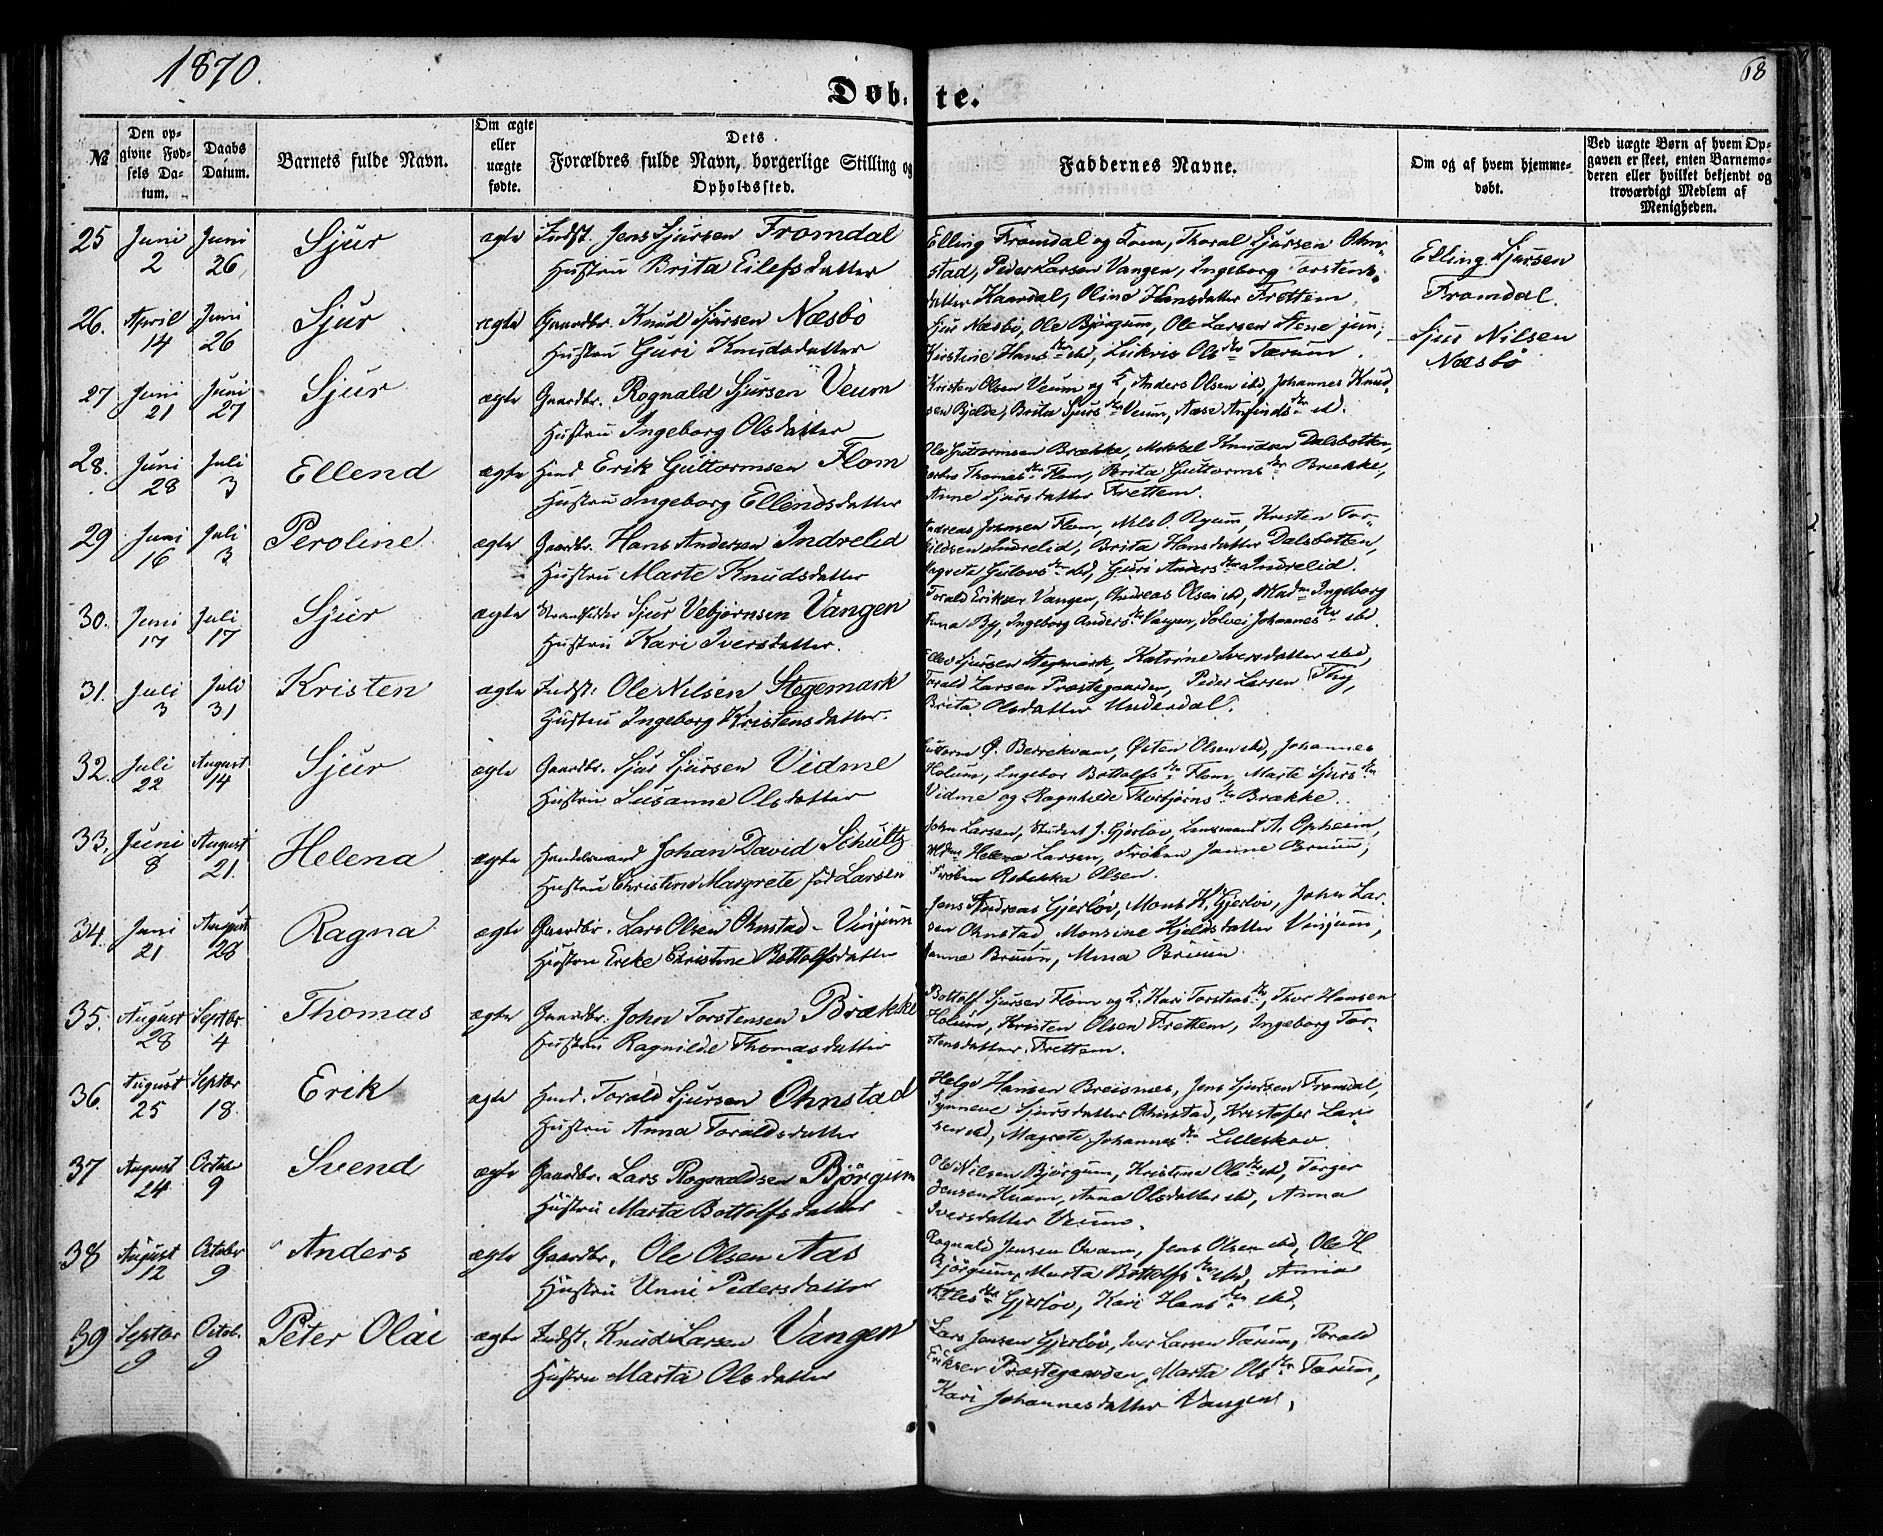 1870.
68
Døbte.
№
Den opgivne Fødsels Datum.
Daabs Datum.
Barnets fulde Navn.
Om ægte eller uægte fødte.
Dets Forældres fulde Navn, borgerlige Stilling og Opholdssted.
Faddernes Navne.
Om og af hvem hjemmedøbt.
Ved uægte Børn af hvem Opgaven er skeet, enten Barnemoderen eller hvilket bekjendt og troværdigt Medlem af Menigheden.
25 Juni 2 Juni 26 Sjur ægte Indst. Jens Sjursen Fromdal
Hustru Brita Eilefsdatter
Elling Fromdal og Kone, Thoral Sjursen Ohn-
stad, Peder Larsen Vangen, Ingeborg Torstens-
datter Kaardal, Oline Hansdatter Frettem
Elling Sjursen
Fromdal.
26. April 14 Juni 26 Sjur ægte Gaardbr. Knud Sjursen Næsbö
Hustru Guri Knudsdatter
Sjur Næsbö, Ole Björgum, Ole Larsen Stene jun;
Kirstine Hansdtr ibd, Lukris Olsdtr Tærum.
Sjur Nilsen
Næsbö
27 Juni 21 Juni 27 Sjur ægte Gaardbr. Rognald Sjursen Veum
Hustru Ingeborg Olsdatter
Kristen Olsen Veum og K, Anders Olsen ibd, Johannes Knud-
sen Bjelde, Brita Sjursdtr Veum, Aase Anfindsdtr ibd.
28. Juni 28 Juli 3 Ellend ægte Huusd. Erik Guttormsen Flom
Hustru Ingeborg Ellendsdatter
Ole Guttormsen Brække, Mikkel Knudsen Dalsbotten,
Thomasdtr Flom, Brita Guttormsdtr Brække,
Anne Sjursdatter Frettem.
29 Juni 16 Juli 3 Peroline ægte Gaardbr. Hans Andersen Indrelid
Hustru Marte Knudsdatter
Andreas Johnsen Flom, Nils O. Ryum, Kristen Tor-
kildsen Indrelid, Brita Hansdatter Dalsbotten,
Magreta Gulovsdtr ibd, Guri Andersdtr Indrelid.
30. Juni 17 Juli 17 Sjur ægte Strandsidder Sjur Vebjørnsen Vangen
Hustru Kari Iversdatter.
Torald Eriksen Vangen, Andreas Olsen ibd, Madm Ingeborg
Anna By, Ingeborg Andersdtr Vangen, Solvei Johannesdtr ibd.
31. Juli 3 Juli 31 Kristen ægte Indst: Ole Nilsen Stegemark
Hustru Ingeborg Kristensdatter.
Ellev Sjursen Stegemark, Katrine Iversdatter ibd,
Torald Larsen Præstegaarden, Peder Larsen Thy,
Brita Olsdatter Underdal.
32. Juli 22 August 14 Sjur ægte Gaardbr. Sjur Sjursen Vidme
Hustru Susanne Olsdatter
Guttorm Ø. Berrekvam, Østen Olsen ibd, Johannes
Holum, Ingebor Bottolfsdtr Flom, Marte Sjursdtr
Vidme og Ragnhilde Thorbjørnsdtr Brække.
33. Juni 8 August 21. Helena ægte Handelsmand Johan David Schultz
Hustru Christine Margrete fød Larsen
John Larsen, Student J. Gjerløv, Lensmand A. Opheim,
Mdm Helena Larsen, Frøken Janne Bruun,
Frøken Rebekka Olsen.
34. Juni 21 August 28 Ragna ægte Gaardbr. Lars Olsen Ohnstad-Vinjum
Hustru Erike Christine Bottolfsdatter
Jens Andreas Gjerløv, Mons K. Gjerløv, John Lar-
sen Ohnstad, Monsine Kjeldsdatter Vinjum,
Janne Bruun, Mina Bruun.
35. August 28 Septbr 4 Thomas ægte Gaardbr. John Torstensen Brække
Hustru Ragnilde Thomasdatter
Bottolf Sjursen Flom og K. Kari Torstensdtr, Thor Hansen
Holum, Kristen Olsen Frettem, Ingeborg Tor-
stensdatter Frettem.
36. August 25 Septbr 18. Erik ægte Huusd. Torald Sjursen Ohnstad
Hustru Anna Toraldsdatter
Helge Hansen Breisnæs, Jens Sjursen Fromdal,
Synneve Sjursdatter Ohnstad, Kristofer Lar-
sen ibd, Magrete Johannesdtr Lilleskov.
37 August 24 October 9 Svend ægte Gaardbr. Lars Rognaldsen Björgum
Hustru Marta Bottolfsdatter
Ole Nilsen Björgum, Kristine Olsdtr ibd, Torger
Jensen Kvam, Anna Olsdatter ibd, Anna
Iversdatter Veum.
38 August 12 October 9 Anders ægte Gaardbr. Ole Olsen Aas
Hustru Unni Pedersdatter
Rognald Jensen Qvam, Jens Olsen ibd, Ole H
Björgum, Marta Bottolfsdtr ibd, Anna
Atlesdtr Gjerløv, Kari Hansdtr ibd.
39 Septbr 9 Octob. 9 Peter Olai ægte Indst. Knud Larsen Vangen
Hustru Marta Olsdatter
Lars Jensen Gjerløv, Iver Larsen Tærum, Torald
Eriksen Præstegaarden, Marta Olsdtr Tærum,
Kari Johannesdatter Vangen.